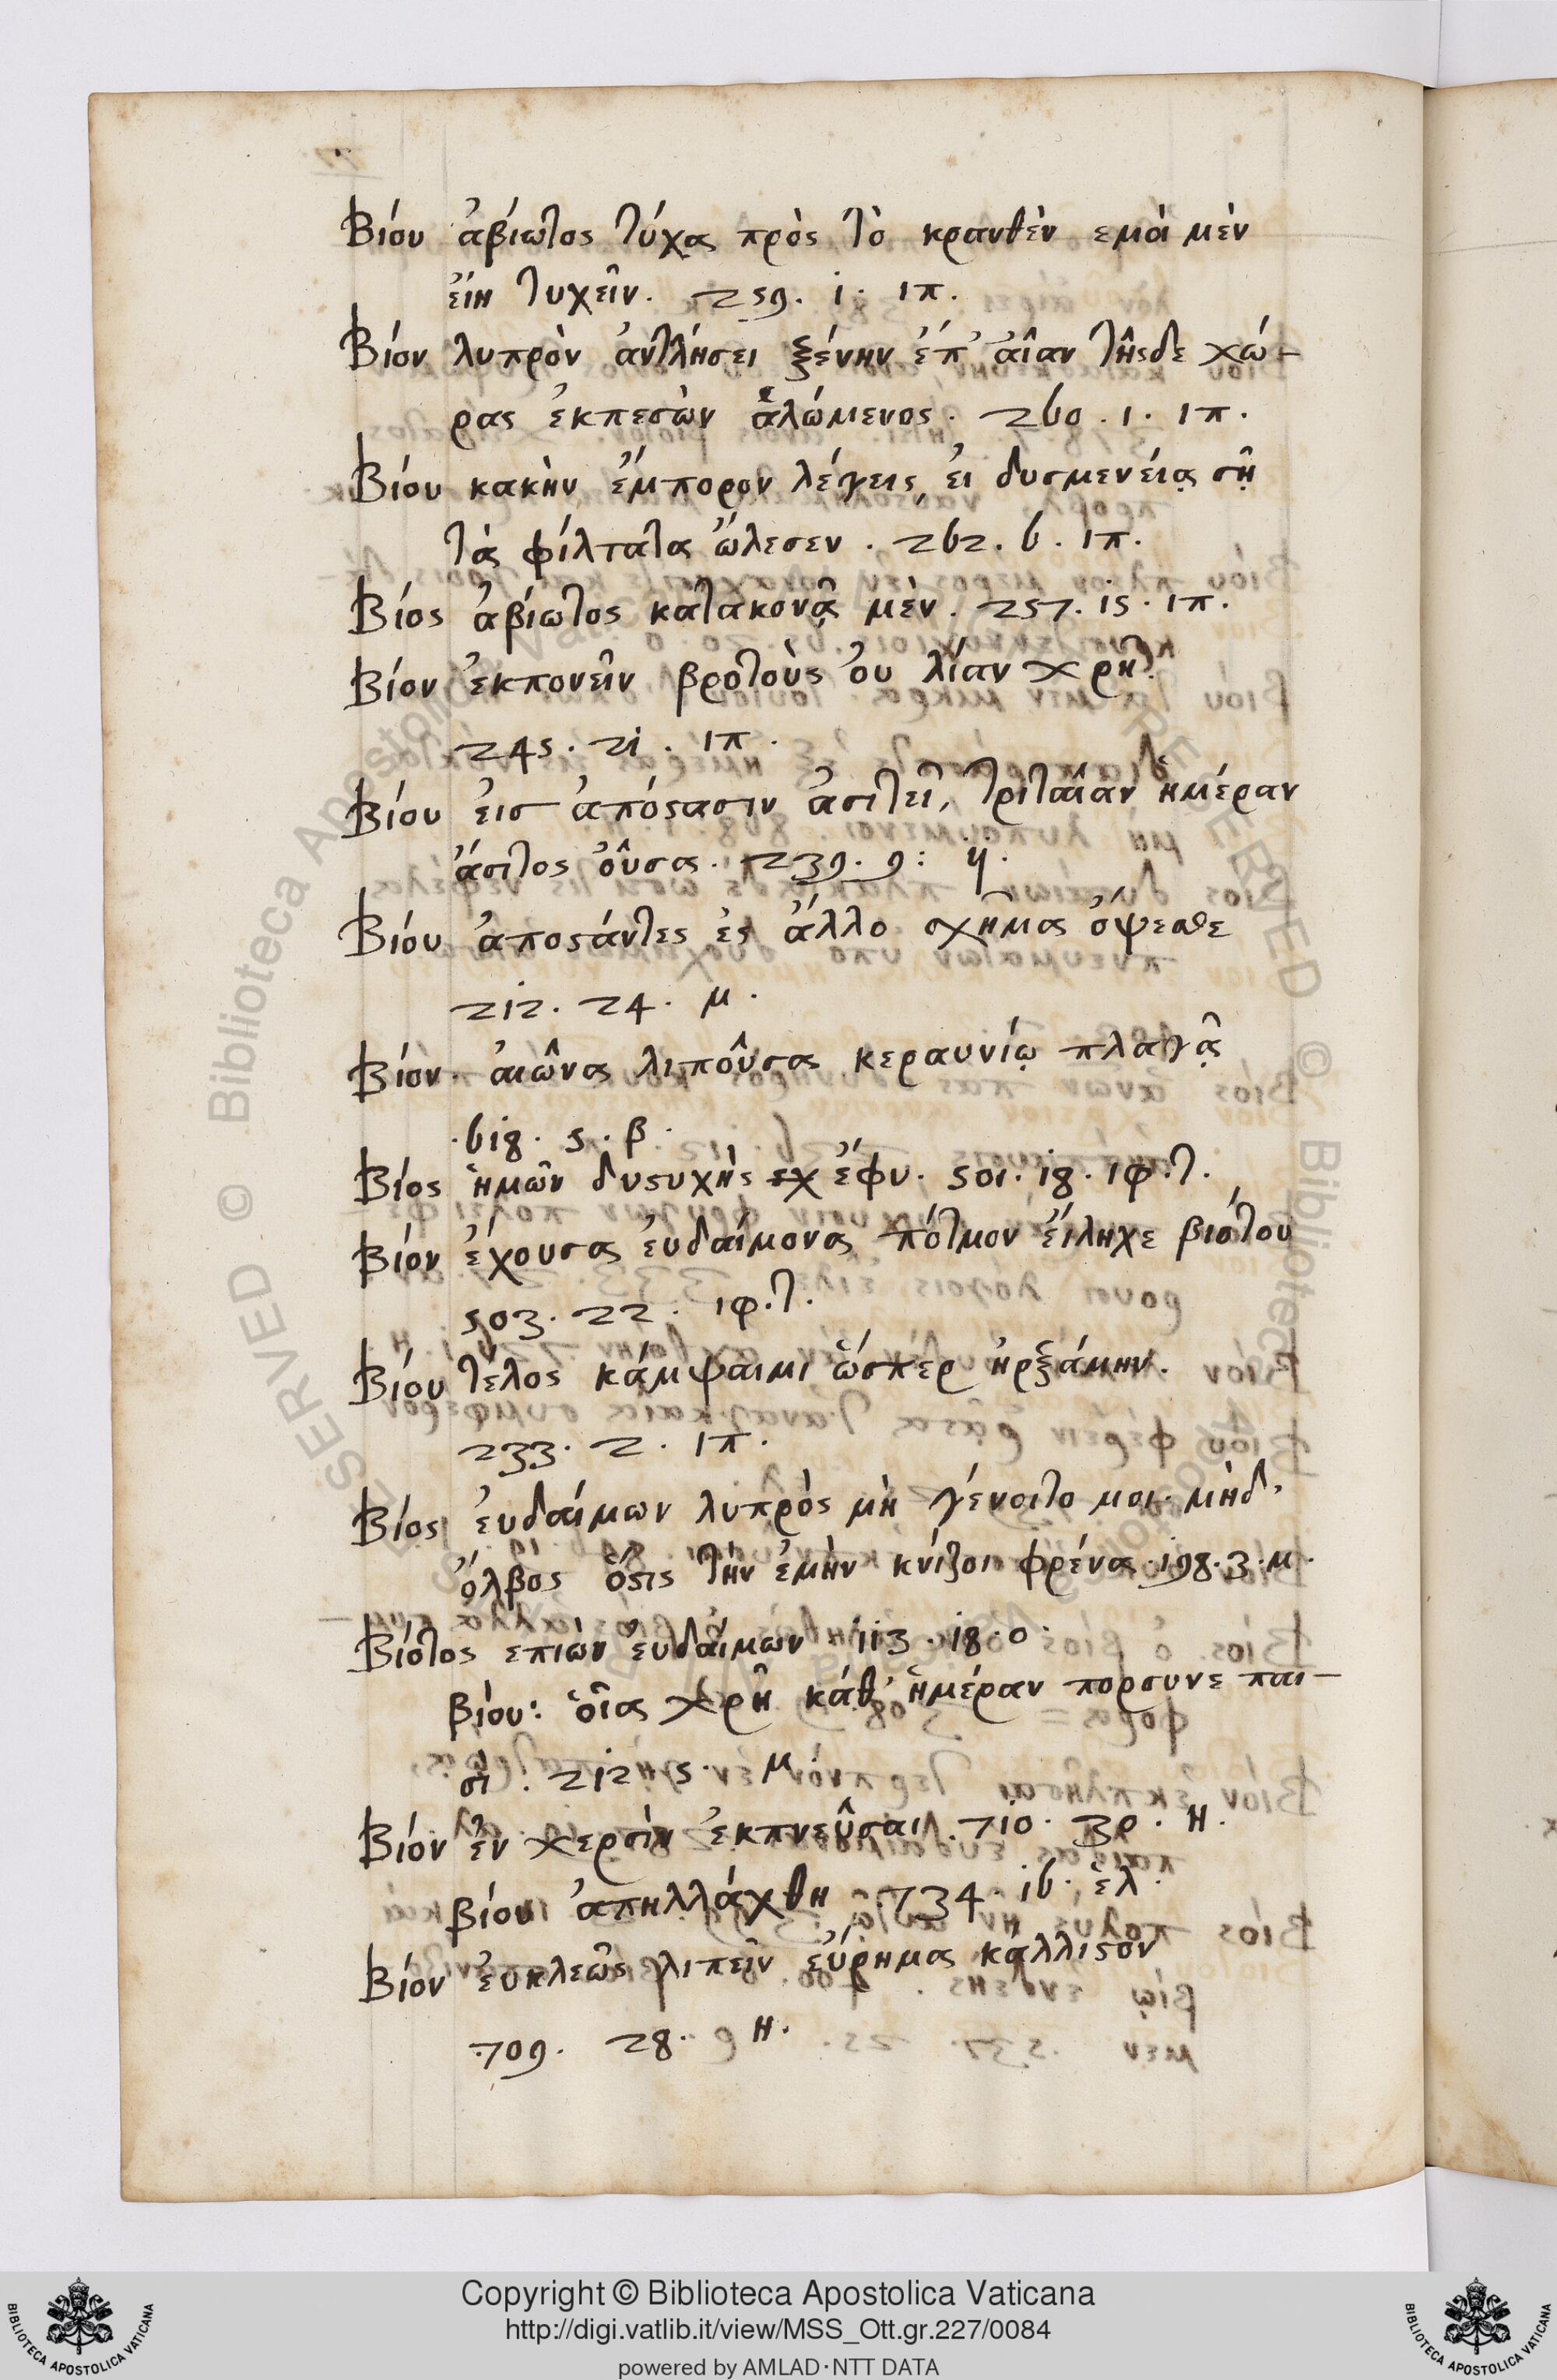 Βίου ἀβίωτος τύχα πρὸς τὸ κρανθὲν εμοὶ μὲν
ἐίη τυχεῖν. 259. 1. ιπ.
Βίον λυπρὸν ἀντλήσει ξένην ἐπ' ἆιαν τῆςδε χώ-
ρας ἐκπεσὼν ἀλώμενος. 260. 1. ιπ.
Βίου κακὴν ἔμπορον λέγεις, ἐι δυσμενείᾳ σῇ
τὰ φίλτατα ὤλεσεν. 262. 6. ιπ.
Βίος ἀβίωτος κατακονᾷ μὲν. 257. 15. ιπ.
Βίον ἐκπονεῖν βροτοὺς ὀυ λίαν χρή.
245. 21. ιπ.
Βίου ἐισ ἀπόςασιν ἀσιτεῖ, τριταίαν ἡμέραν
ἄσιτος ὀῦσα. 239. 9: ἱπ.
Βίου ἀποςάντες ἐς ἄλλο σχῆμα ὄψεσθε
212. 24. μ.
Βίον. ἀιῶνα λιποῦσα κεραυνίῳ πλαγᾷ
.618. 5. β.
Βίος ἡμῶν δυςυχὴς ἔφυ. 501. 18. ιφ.τ.
Βίον ἔχουσα ἐυδαίμονα πότμον ἔιληχε βιότου
503. 22. ιφ.τ.
Βίου τέλος κάμψαιμι ὥσπερ ἠρξάμην.
233. 2. ιπ.
Βίος ἐυδαίμων λυπρὸς μὴ γένοιτο μοι. μὴδ'
ὄλβος ὅςις τὴν ἐμὴν κνίζοι φρένα. 198. 3. μ.
Βίοτος επιὼν ἐυδαίμων. 113. 18. ο.
βίου: ὁῖα χρῆ κάθ' ἡμέραν πορσυνε παι-
σὶ. 212. 5. μ.
Βίον ἐν χερσὶν ἐκπνεῦσαι. 710. 30. Η.
βίου ἀπηλλάχθη. 734. 16. ἑλ.
Βίον ἐυκλεῶς λιπεῖν ἑύρημα κάλλιςον
.709. 28. Η.
Copyright © Biblioteca Apostolica Vaticana
http://digi.vatlib.it/view/MSS_Ott.gr.227/0084
powered by AMLAD·NTT DATA